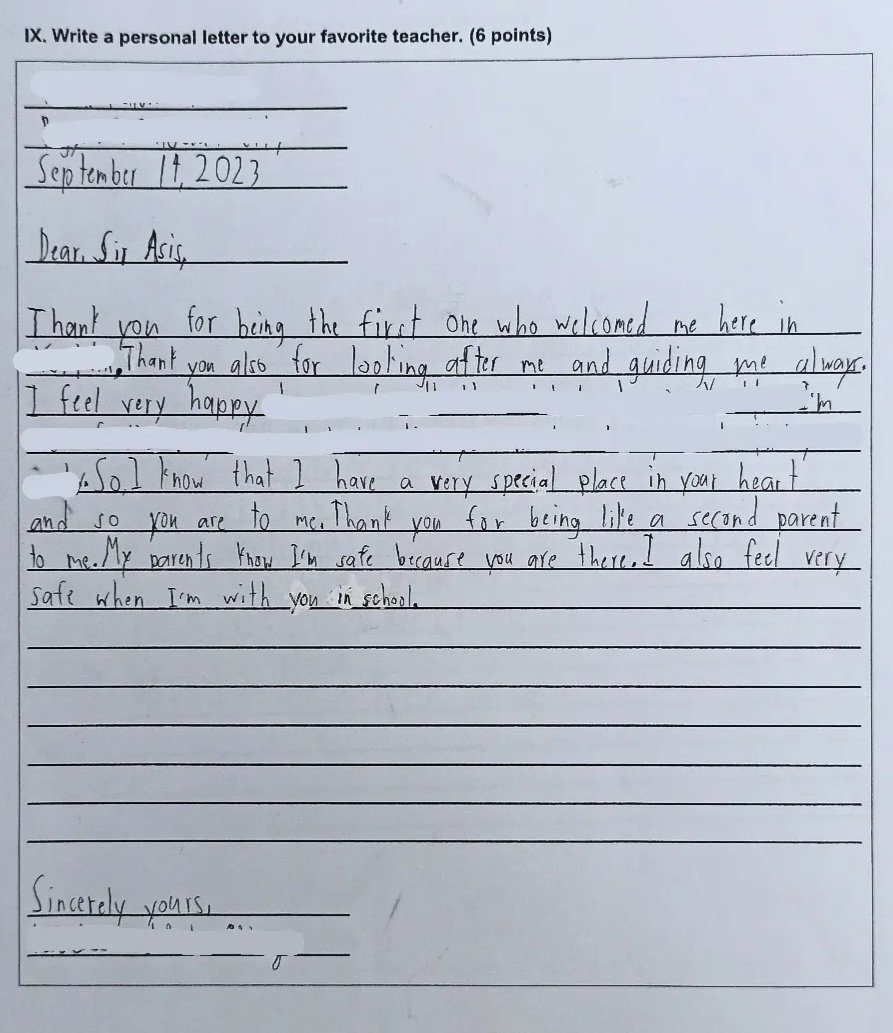 IX. Write a personal letter to your favorite teacher. (6 points)
September 14, 2023
Dear, Sir Asis,
Thank you for being the first one who welcomed me here in
Thank you also for looking after me and guiding me always.
I feel very happy I'm
So, I know that I have a very special place in your heart
and so you are to me. Thank you for being like a second parent
to me. My parents know I'm safe because you are there. I also feel very
safe when I'm with you in school.
Sincerely yours,